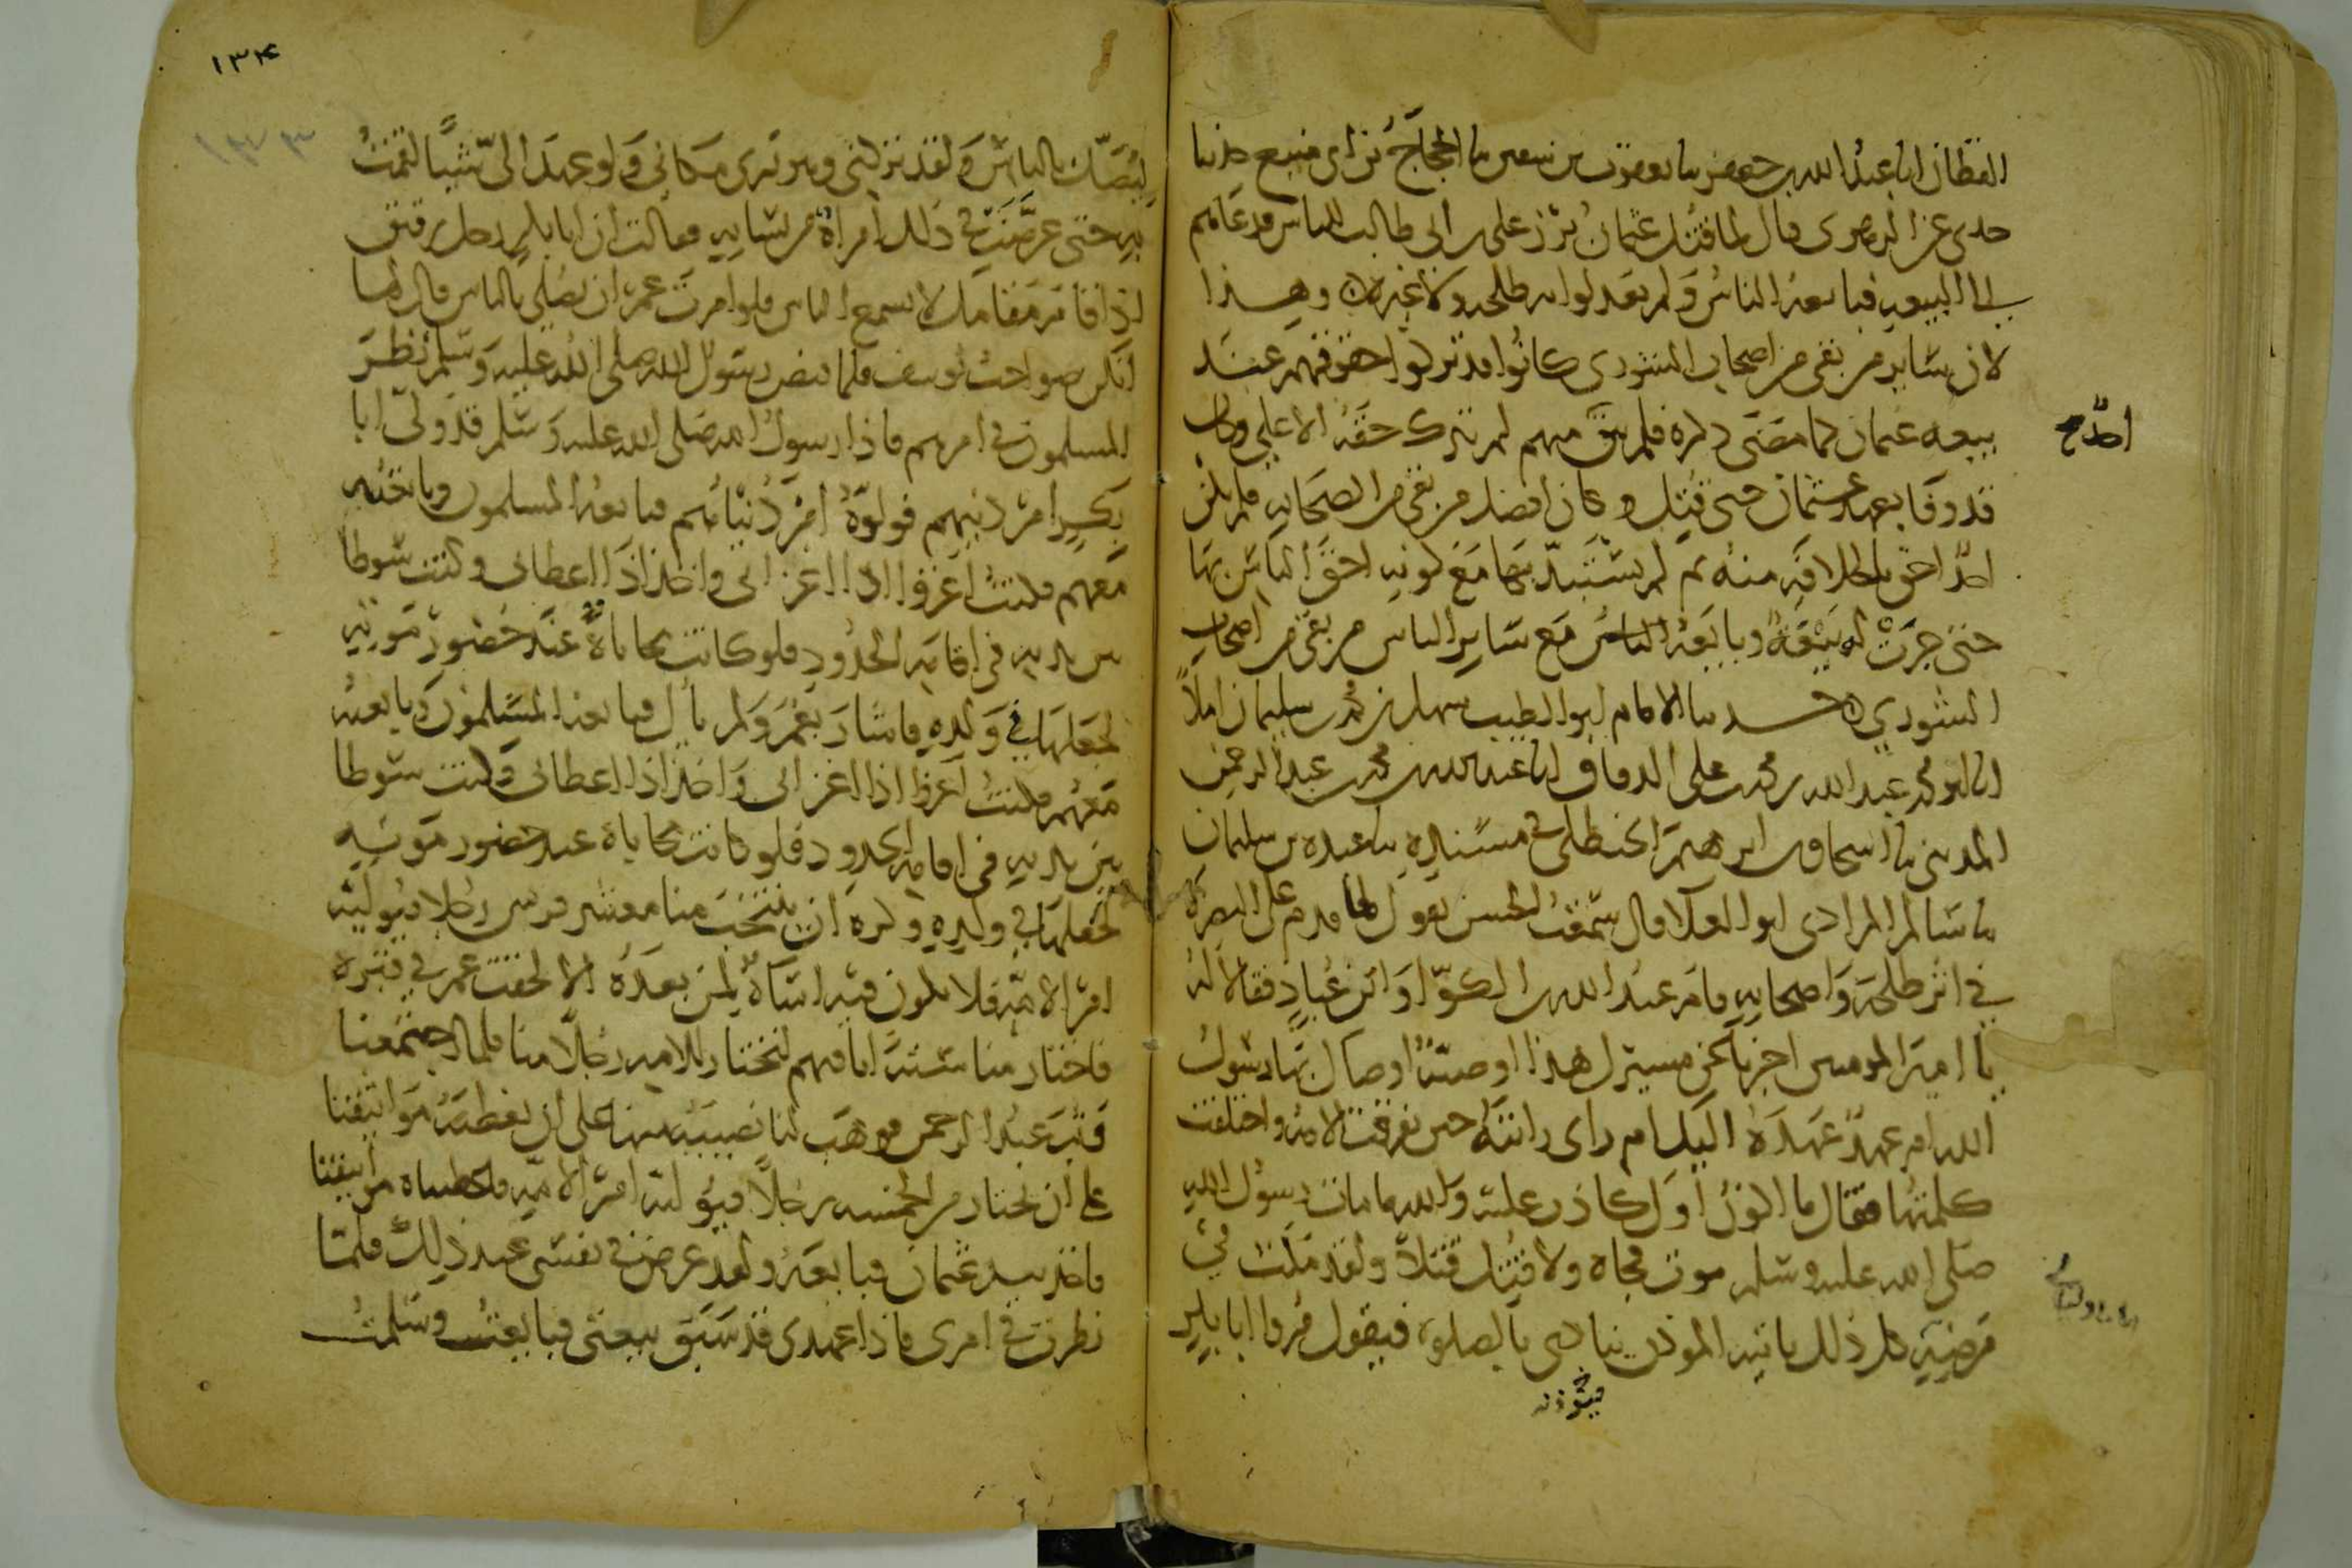 القطان انا عبد الله بن جعفر نا يعقوب بن سفين نا الحجاج بن ابى منيع حدثنا
جدى عن الزهرى قال لما قتل عثمان برز على بن ابى طالب للناس فدعاهم
الى البيعه فبايعه الناس ولم يعدلوا به طلحه ولا غيره وهذا
لان ساير من بقى من اصحاب الشورى كانوا قد تركوا حقوقهم عند
بيعه عثمان كما مضى ذكره فلم يبق منهم لم يترك حقه الا على وكان
احد
قد وفا بعهد عثمان حتى قتل وكان افضل من بقى من الصحابه فلم يكن
احد احق بالخلافه منه ثم لم يستبد بها مع كونه احق الناس بها
حتى جرت له بيعة وبايعه الناس مع ساير الناس من بقى من اصحاب
الشورى حدثنا الامام ابو الطيب سهل بن محمد بن سليمان املاً
انا ابو محمد عبد الله بن محمد بن على الدقاق انا عبد الله بن محمد بن عبد الرحمن
المدينى نا اسحاق بن ابرهيم الحنظلى فى مسنده نا عبده بن سليمان
نا سالم المرادى ابو العلا قال سمعت الحسن يقول لما قدم على البصرة
فى اثر طلحة واصحابه قام عبد الله بن الكوا وابن عباد فقالا له
يا امير المومنين اخبرنا عن مسيرك هذا اوصية اوصاك بها رسول
الله ام عهد عهده اليك ام راى رايته حين تفرقت الامة واختلفت
كلمتها فقال ما اكون اول كاذب عليه والله ما مات رسول الله
صلى الله عليه وسلم موت فجاه ولا قتل قتلاً ولقد مكث فى
مرضه كل ذلك ياتيه الموذن بالصلوة فيقول مروا ابا بكر
فيؤذنه
١٣٤
١٣٣
ليصل بالناس ولقد تركنى وهو يرى مكانى ولو عهد الى شيئاً لقمت
به حتى عرضت فى ذلك امراة من نسايه فقالت ان ابا بكر رجل رقيق
اذا قام مقامك لا يسمع الناس فلو امرت عمر ان يصلى بالناس قال لها
انكن صواحب يوسف فلما قبض رسول الله صلى الله عليه وسلم نظر
المسلمون فى امرهم فاذا رسول الله صلى الله عليه وسلم قد ولى ابا
بكر امر دينهم فولوه امر دنياهم فبايعه المسلمون وبايعته
معهم فكنت اغزوا اذا اغزانى واخذ اذا اعطانى وكنت سوطا
بين يديه فى اقامة الحدود فلو كانت محاباة عند حضور موته
لجعلها فى ولده فاشار بعمر ولم يأل فبايعه المسلمون وبايعته
معهم فكنت اغزوا اذا اغزانى واخذ اذا اعطانى وكنت سوطا
بين يديه فى اقامة الحدود فلو كانت محاباة عند حضور موته
لجعلها فى ولده وكره ان ينتخب منا معشر قريش رجلا فيوليه
امر الامة فلا يكون فيه اساة لمن بعده الا لحقت عمر فى قبره
فاختار منا ستة انا فيهم لنختار للامة رجلاً منا فلما اجتمعنا
وثب عبد الرحمن فوهب لنا نصيبه منها على ان نعطيه مواثيقنا
على ان يختار من الخمسه رجلاً فيوليه امر الامة فاعطيناه مواثيقنا
فاخذ بيد عثمان فبايعه ولقد عرض فى نفسى عند ذلك فلما
نظرت فى امرى فاذا عهدى قد سبق بيعتى فبايعت وسلمت